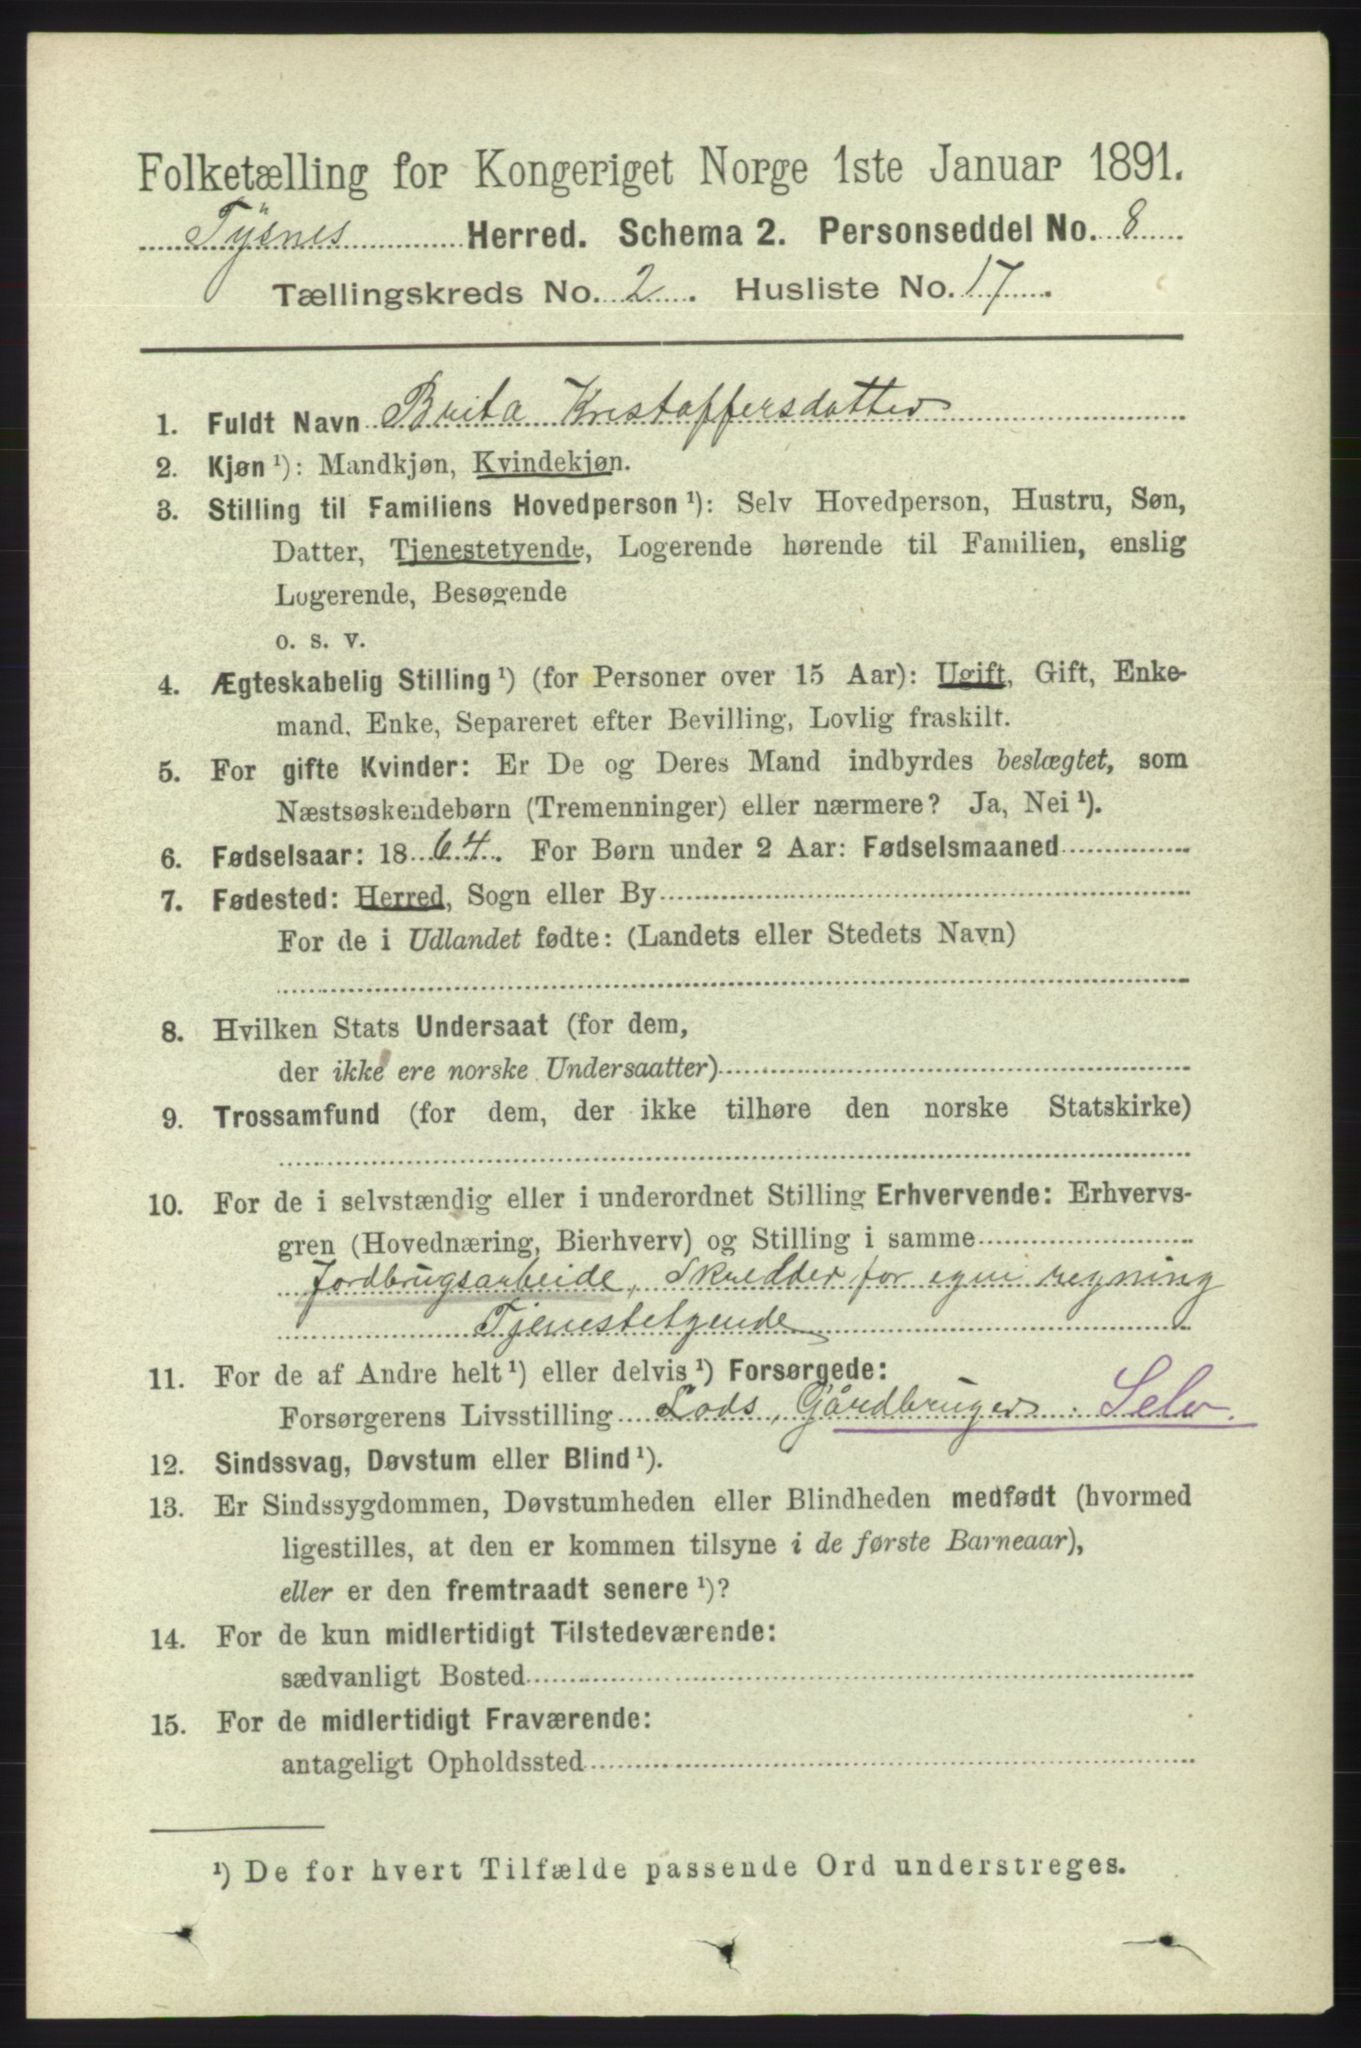 Folketælling for Kongeriget Norge 1ste Januar 1891.
Tysnes Herred. Schema 2. Personseddel No. 8
Tællingskreds No. 2. Husliste No. 17.
1. Fuldt Navn Brita Kristoffersdatter
2. Kjøn ¹): Mandkjøn, Kvindekjøn.
3. Stilling til Familiens Hovedperson ¹): Selv Hovedperson, Hustru, Søn,
Datter, Tjenestetyende, Logerende hørende til Familien, enslig
Logerende, Besøgende
o. s. v.
4. Ægteskabelig Stilling ¹) (for Personer over 15 Aar): Ugift, Gift, Enke-
mand, Enke, Separeret efter Bevilling, Lovlig fraskilt.
5. For gifte Kvinder: Er De og Deres Mand indbyrdes beslægtet, som
Næstsøskendebørn (Tremenninger) eller nærmere? Ja, Nei ¹).
6. Fødselsaar: 1864. For Børn under 2 Aar: Fødselsmaaned
7. Fødested: Herred, Sogn eller By
For de i Udlandet fødte: (Landets eller Stedets Navn)
8. Hvilken Stats Undersaat (for dem,
der ikke ere norske Undersaatter)
9. Trossamfund (for dem, der ikke tilhøre den norske Statskirke)
10. For de i selvstændig eller i underordnet Stilling Erhvervende: Erhvervs-
gren (Hovednæring, Bierhverv) og Stilling i samme
Jordbrugsarbeide, Skredder for egen regning
Tjenestetyende
11. For de af Andre helt ¹) eller delvis ¹) Forsørgede:
Forsørgerens Livsstilling Lods, Gårdbruger. Selv.
12. Sindssvag, Døvstum eller Blind ¹).
13. Er Sindssygdommen, Døvstumheden eller Blindheden medfødt (hvormed
ligestilles, at den er kommen tilsyne i de første Barneaar),
eller er den fremtraadt senere ¹)?
14. For de kun midlertidigt Tilstedeværende:
sædvanligt Bosted
15. For de midlertidigt Fraværende:
antageligt Opholdssted
¹) De for hvert Tilfælde passende Ord understreges.